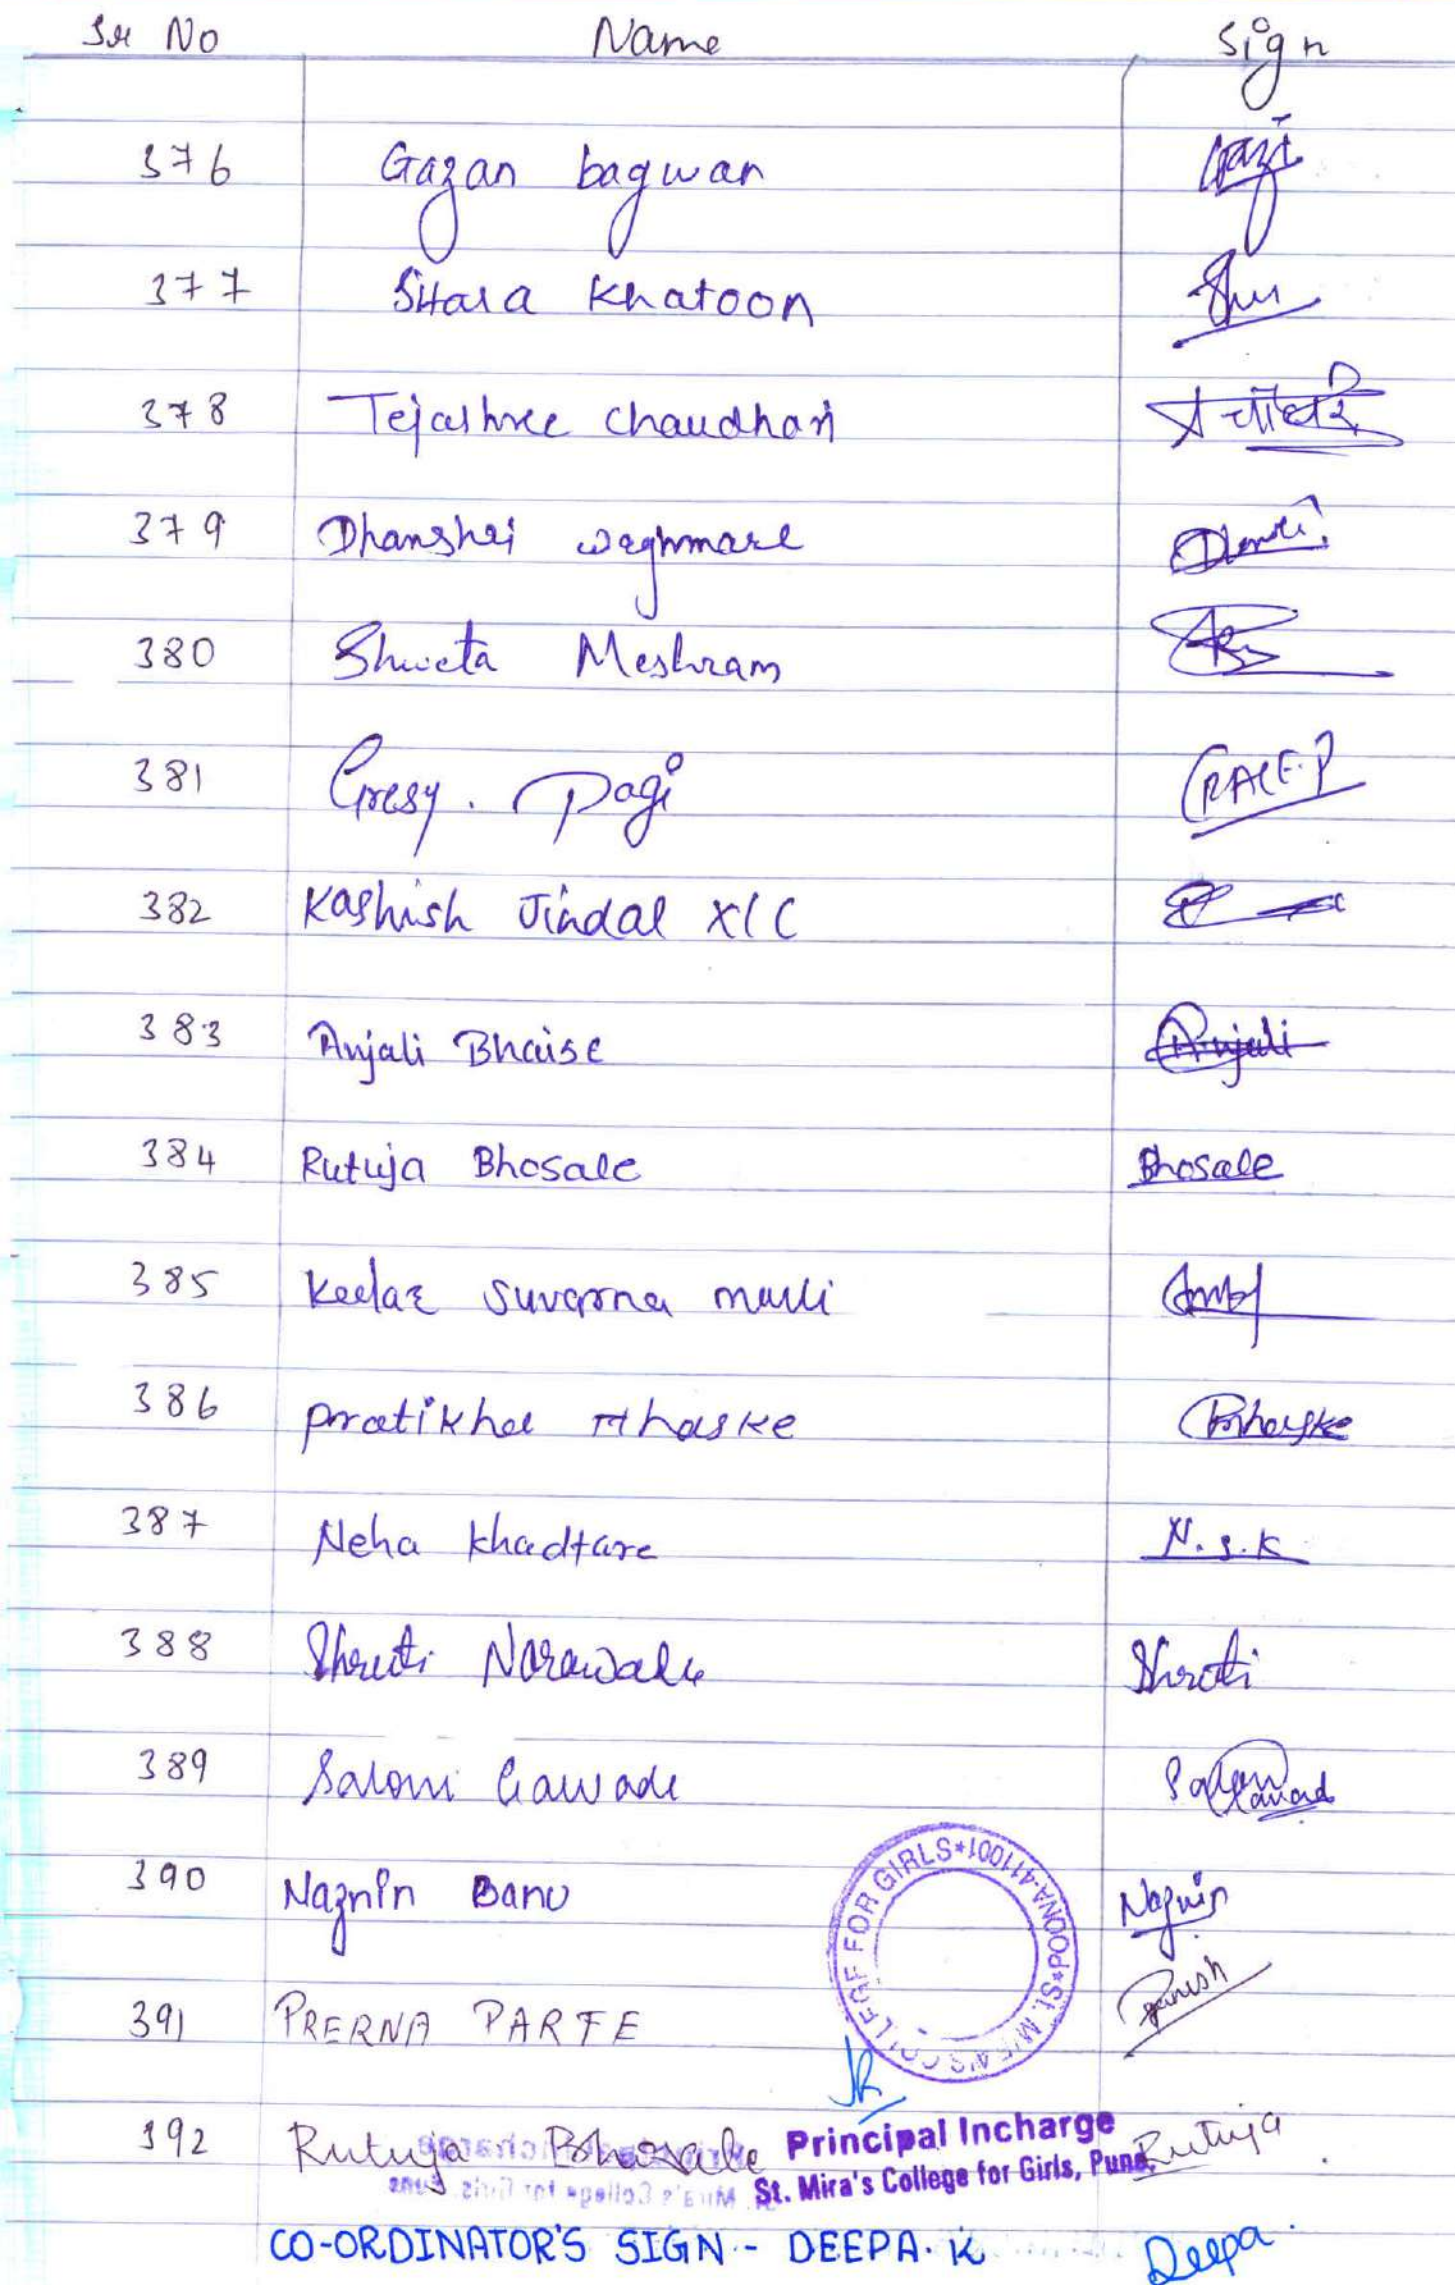 Sr No Name Sign
376 Gazan bagwan
377 Sitara Khatoon
378 Tejashree chaudhari
379 Dhanshri waghmare
380 Shweta Meshram
381 Gresy. Pagi GRACE.P
382 Kashish Jindal XIC
383 Anjali Bhaise Anjali
384 Rutuja Bhosale Bhosale
385 Kedar Suvarna
386 pratikha Mhaske
387 Neha khadtare N.S.K
388 Shruti Narawale Shruti
389 Saloni Gawade
390 Naznin Banu Naznin
St. MIRA'S COLLEGE FOR GIRLS*POONA-411001*
391 PRERNA PARTE
392 Rutuja Bhosale Rutuja
Principal Incharge
St. Mira's College for Girls, Pune.
CO-ORDINATOR'S SIGN - DEEPA. K Deepa.